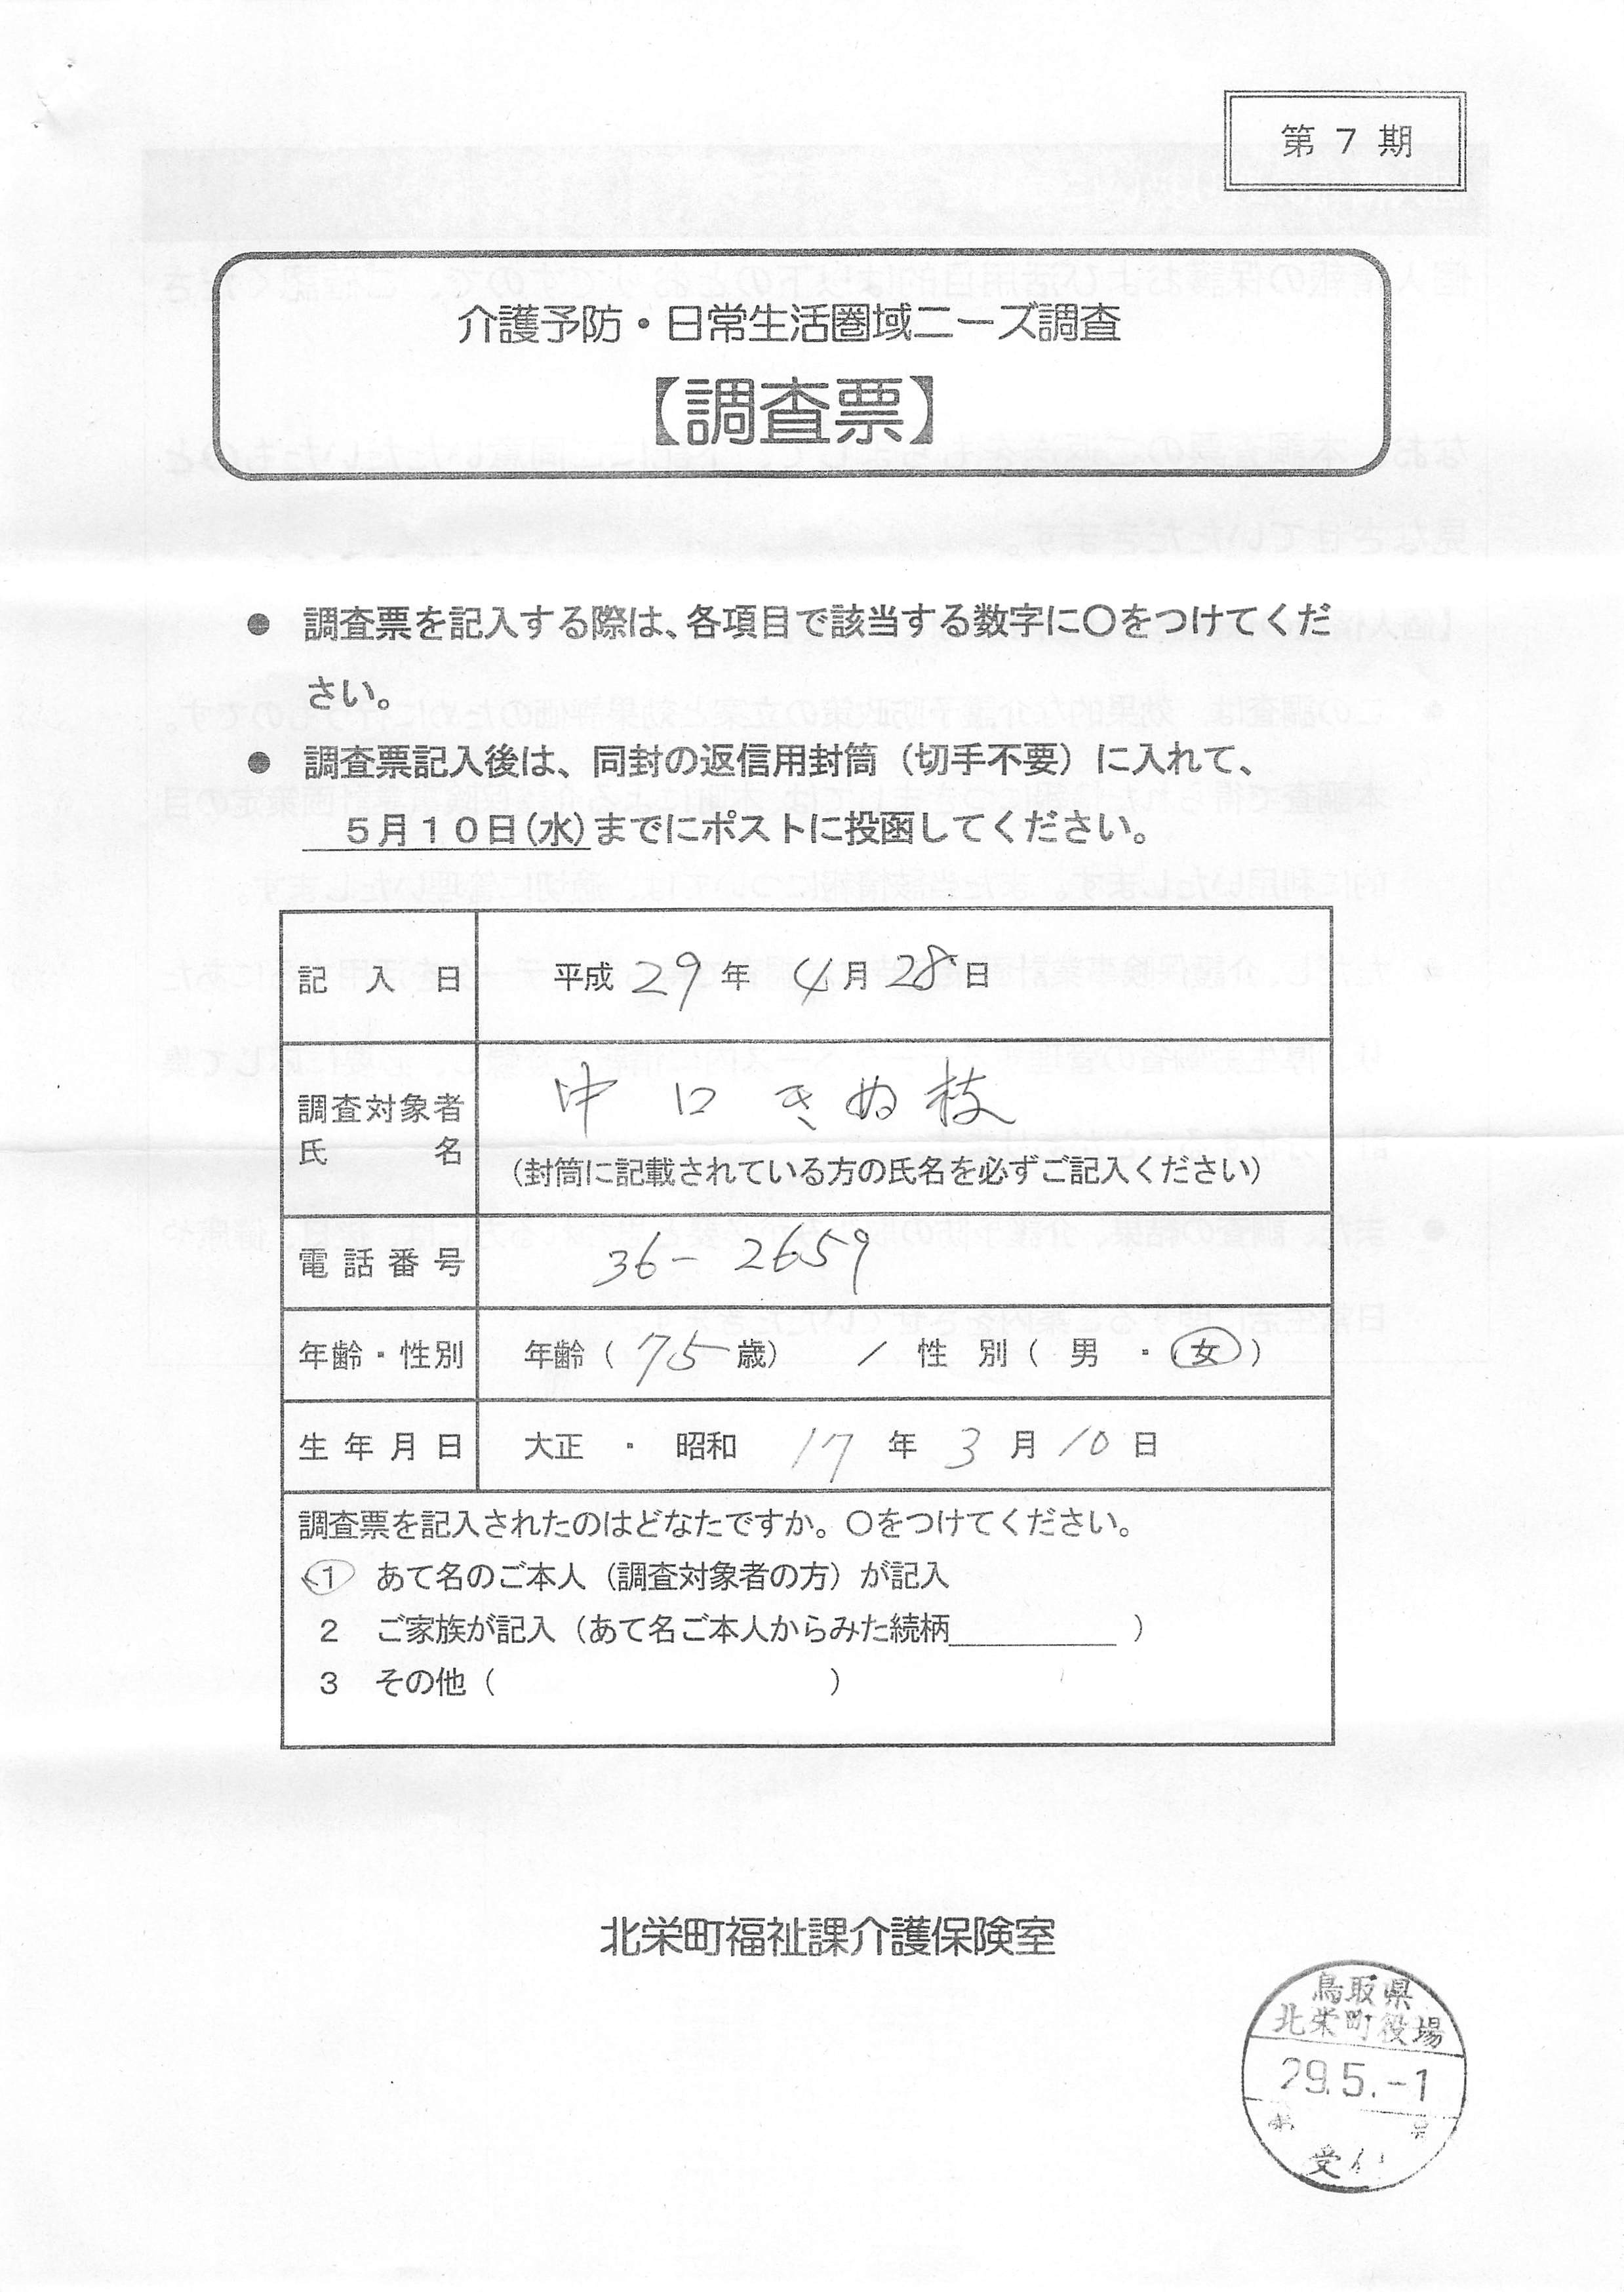 第 7 期
介護予防・日常生活圏域ニーズ調査
【調査票】
● 調査票を記入する際は、各項目で該当する数字に〇をつけてくだ
さい。
● 調査票記入後は、同封の返信用封筒（切手不要）に入れて、
５月１０日（水）までにポストに投函してください。
記入日 平成 29 年 4 月 28 日
調査対象者
氏名
中口きぬ枝
（封筒に記載されている方の氏名を必ずご記入ください）
電話番号 36-2659
年齢・性別 年齢（ 75 歳） ／ 性別（ 男 ・ 女 ）
生年月日 大正 ・ 昭和 17 年 3 月 10 日
調査票を記入されたのはどなたですか。〇をつけてください。
1 あて名のご本人（調査対象者の方）が記入
2 ご家族が記入（あて名ご本人からみた続柄 ）
3 その他（ ）
北栄町福祉課介護保険室
鳥取県
北栄町役場
29.5.-1
受付